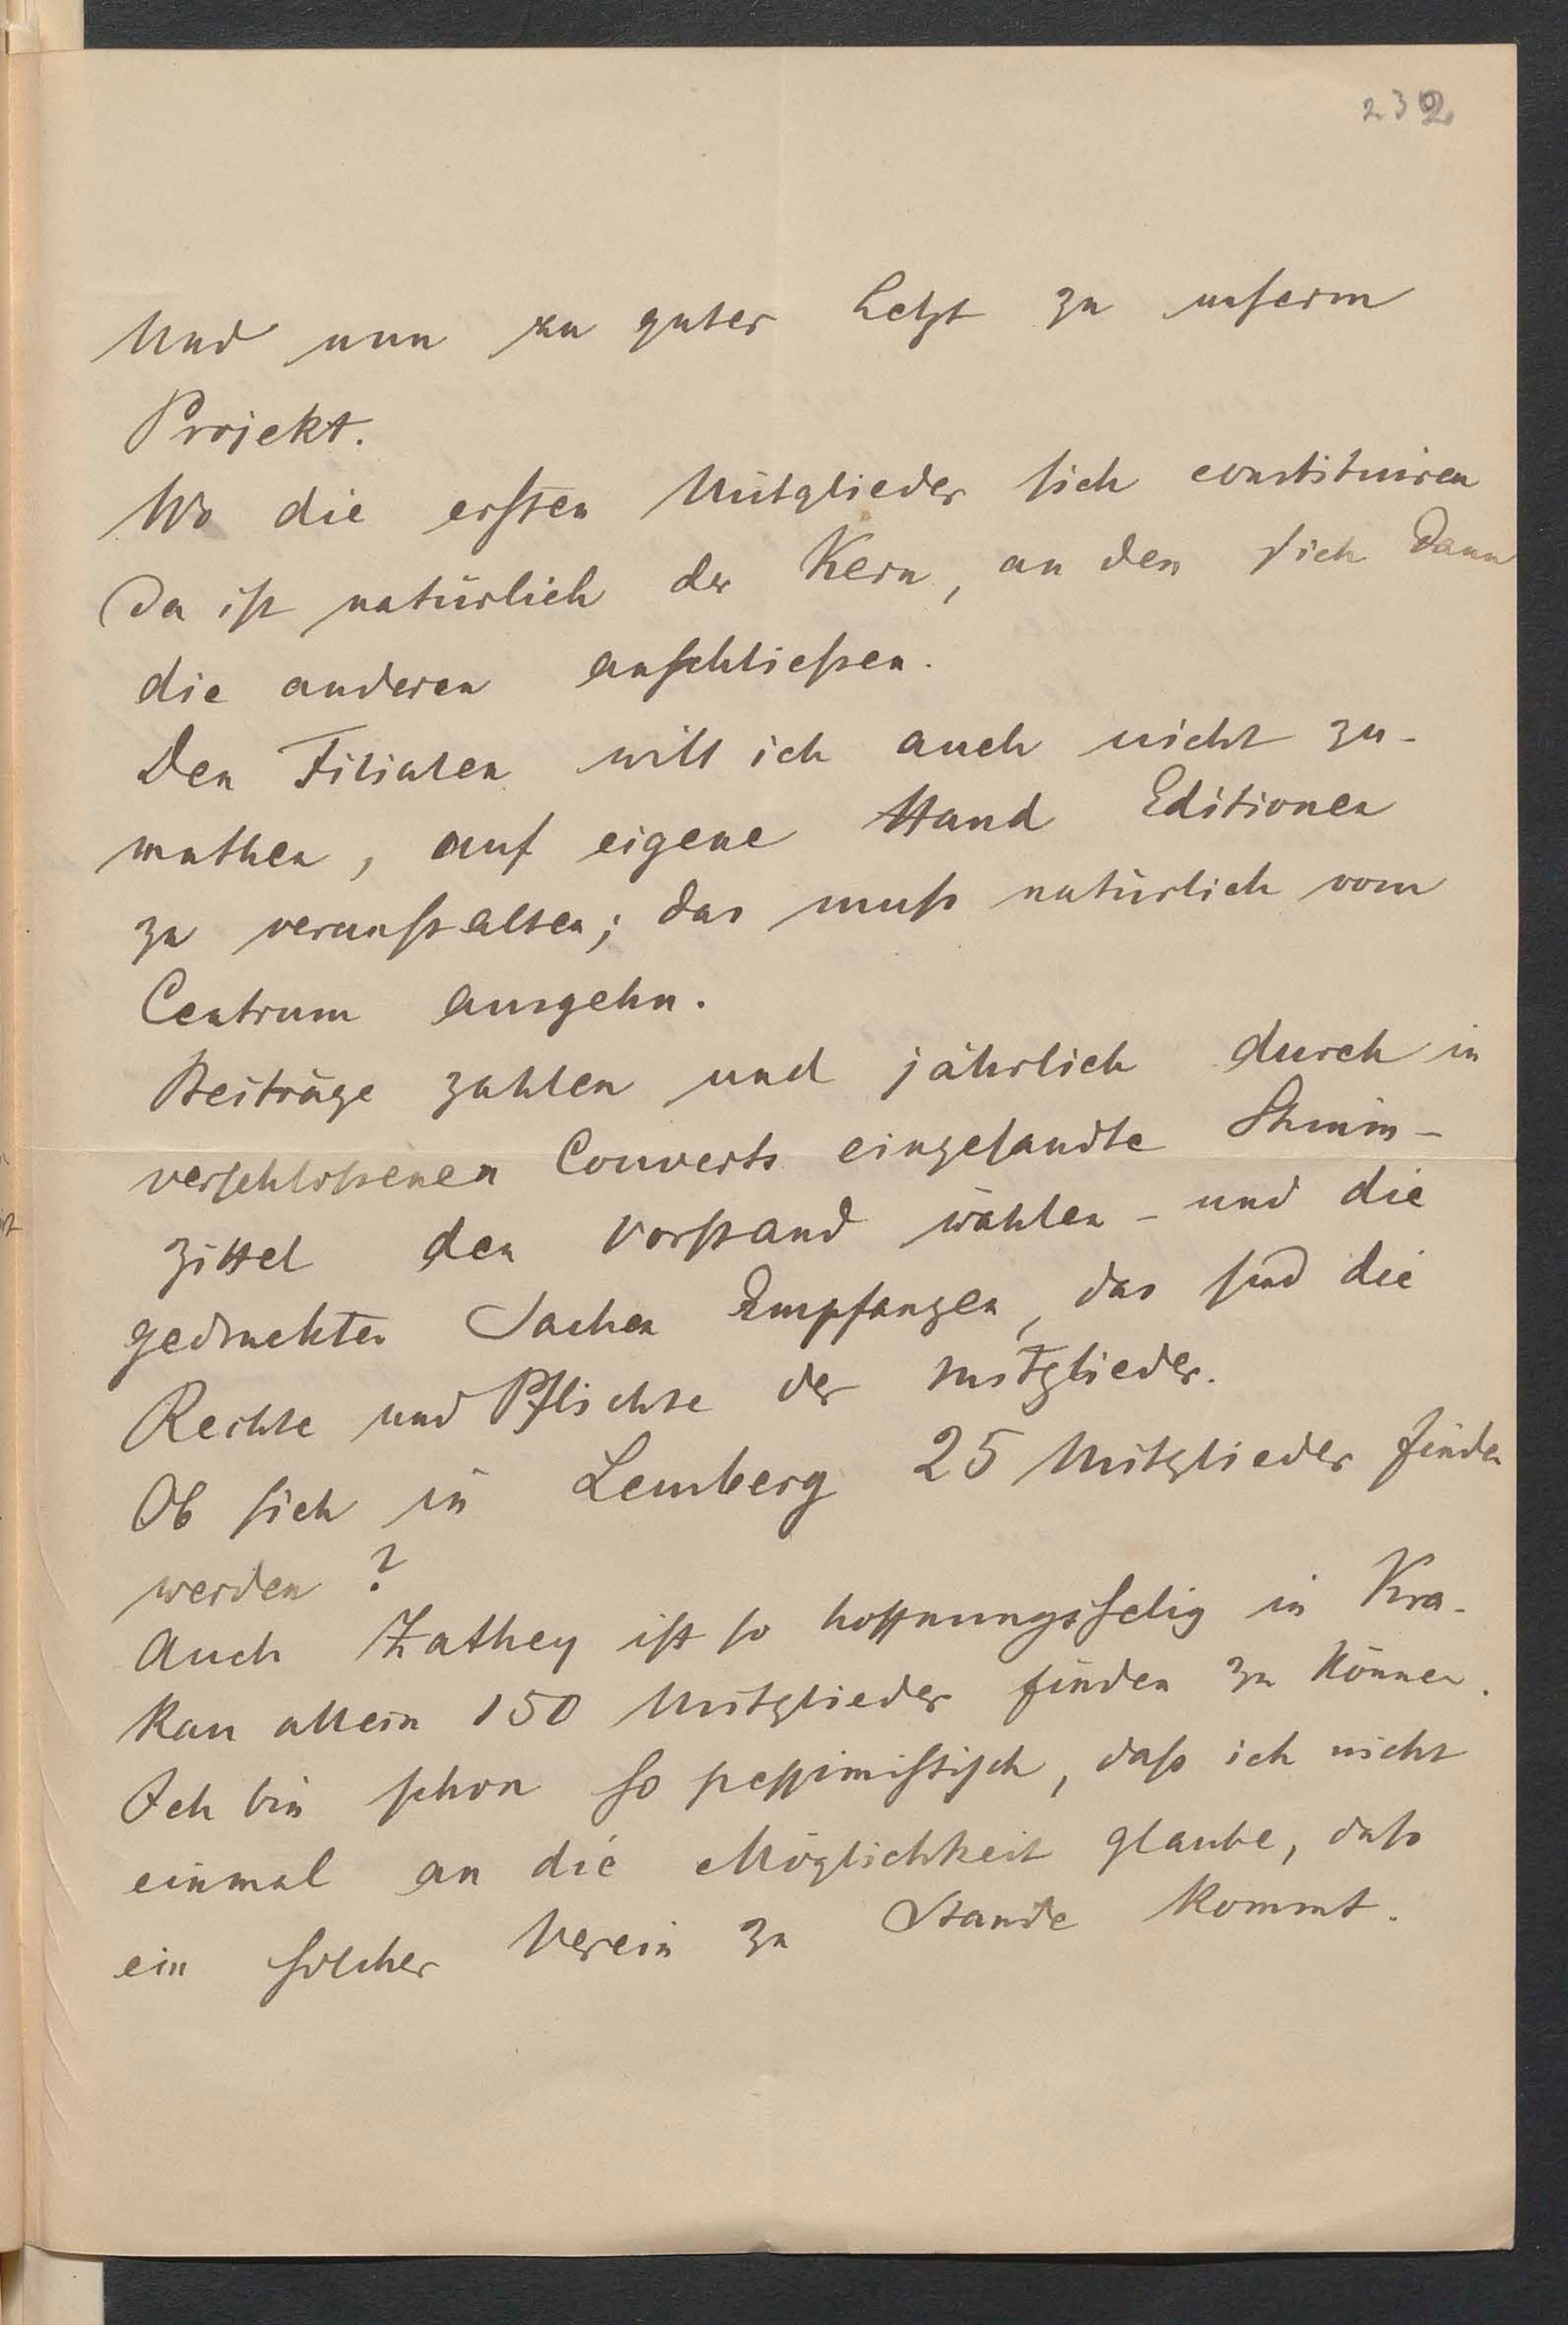 232
Und nun zu guter Letzt zu unserm
Projekt.
Wo die ersten Mitglieder sich constituiren
Da ist natürlich der Kern, an den sich dann
die anderen anschließen.
Den Filialen will ich auch nicht zu-
muthen, auf eigene Hand Editionen
zu veranstalten; das muß natürlich vom
Centrum ausgehn.
Beiträge zahlen und jährlich durch in
verschloßenen Couverts eingesandte Stimm-
zittel den Vorstand wählen – und die
gedruckten Sachen Empfangen, das sind die
Rechte und Pflichte der Mitglieder.
Ob sich in Lemberg 25 Mitglieder finden
werden?
Auch Zathey ist so hoffnungsselig in Kra-
kau allein 150 Mitglieder finden zu können.
Ich bin schon so pessimistisch, daß ich nicht
einmal an die Möglichkeit glaube, daß
ein solcher Verein zu Stande kommt.